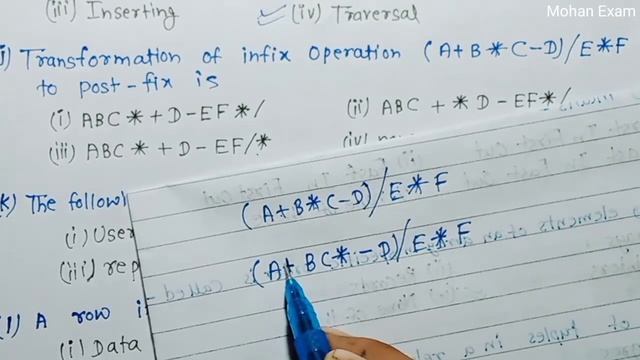 (iii) Inserting (iv) Traversal
Mohan Exam
J) Transformation of infix operation (A+B*C-D)/E*F
to post-fix is
(i) ABC*+D-EF*/ (ii) ABC+*D-EF*/
(iii) ABC*+D-EF/* (iv)
(A+B*C-D)/E*F
K) The follow
(A+BC*-D)/E*F
(i) User
(iii) rep
(l) A row i
(i) Data